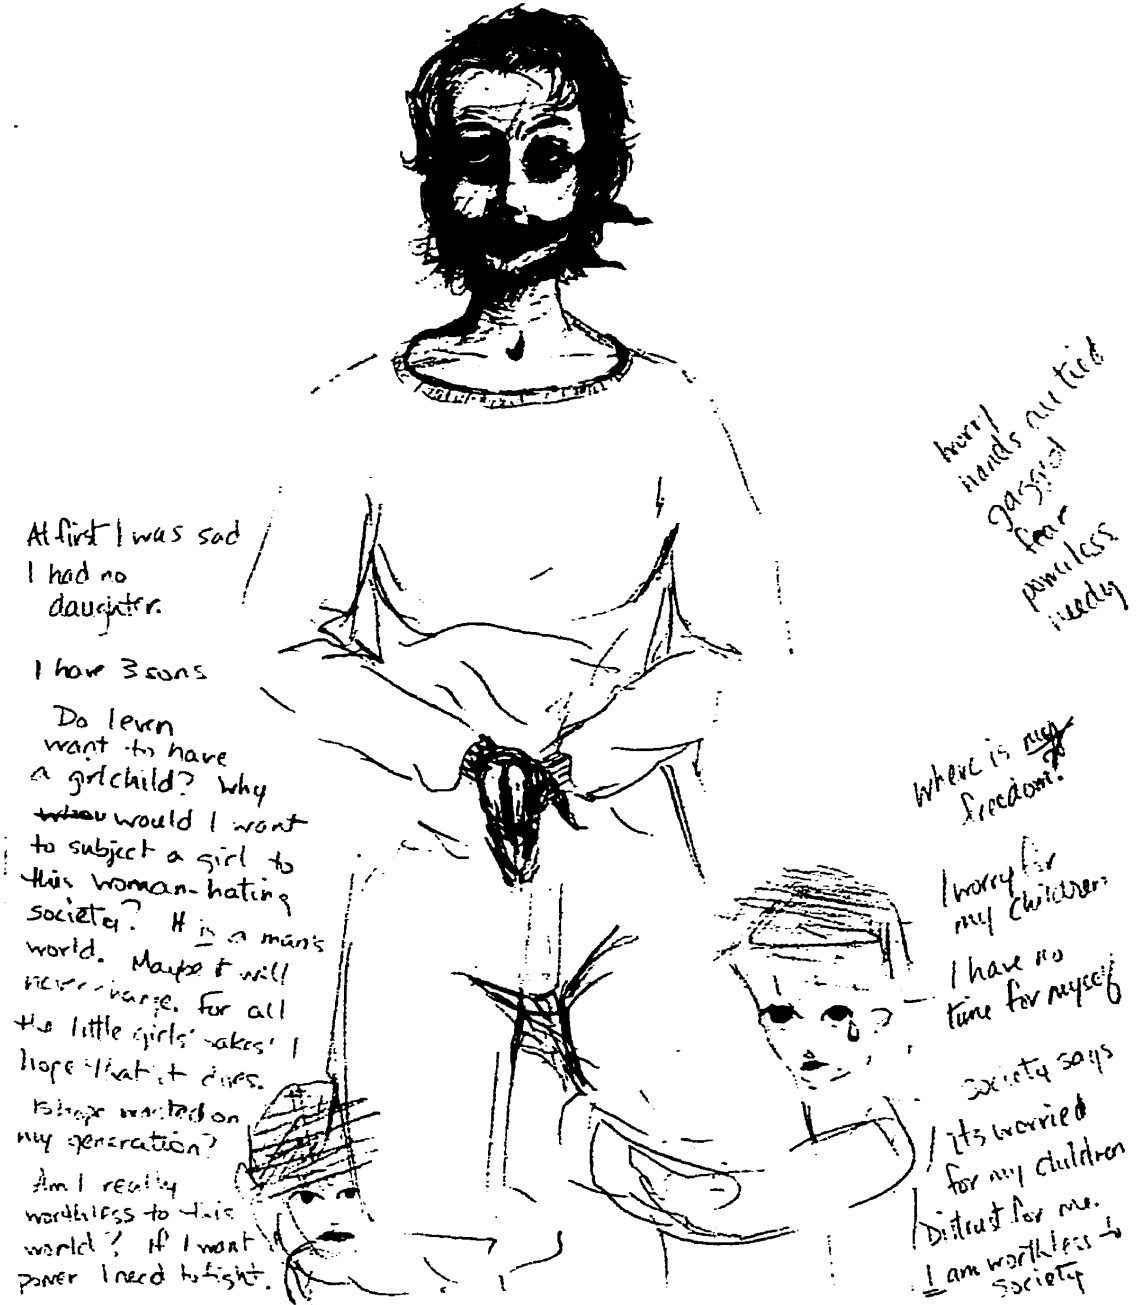 At first I was sad
I had no
daughter.
I have 3 sons
Do I even
want to have
a girlchild? Why
would I want
to subject a girl to
this woman-hating
society? It is a man's
world. Maybe it will
never change. For all
the little girls' sakes' I
hope that it does.
Is hope wasted on
my generation?
Am I really
worthless to this
world? If I want
power I need to fight.
worry
hands are tied
gagged
fear
powerless
needy
Where is my
freedom?
I worry for
my children.
I have no
time for myself
Society says
its worried
for my children
Distrust for me.
I am worthless to
society